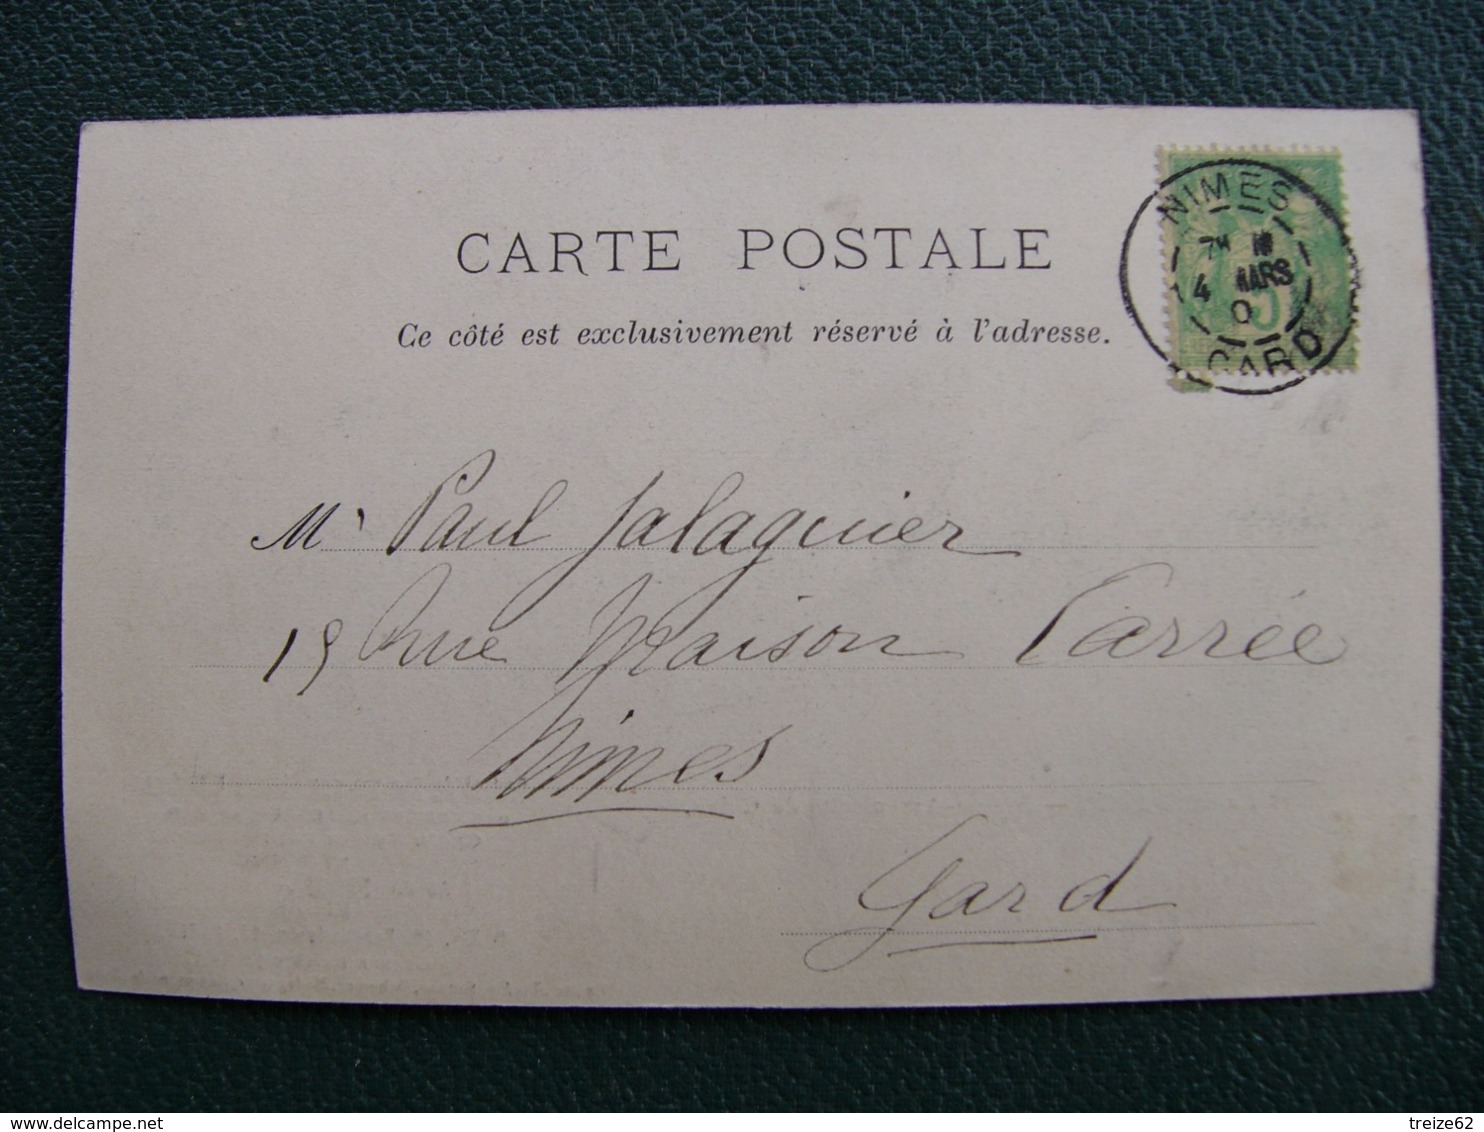 CARTE POSTALE
Ce côté est exclusivement réservé à l'adresse.
NIMES
7M
4 MARS
0
GARD
5
Mr Paul Jalaguier
19 Rue Maison Carrée
Nimes
Gard
delcampe.net
treize62